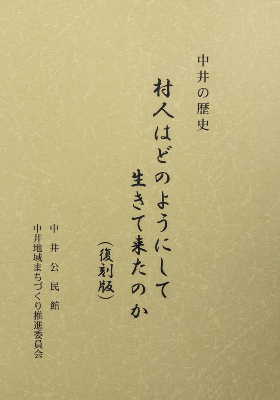 中井の歴史
村人はどのようにして
生きて来たのか
（復刻版）
中井公民館
中井地域まちづくり推進委員会